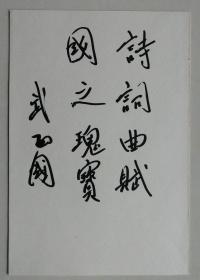 詩詞曲賦
國之瑰寶
武正國